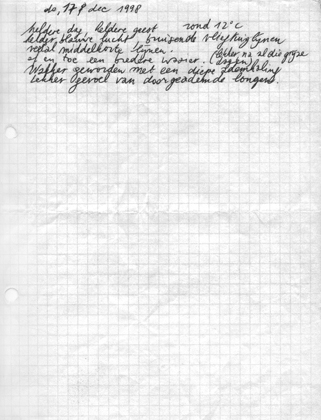 do, 17 dec 1998
heldere dag heldere geest rond 12°C
helder blauwe lucht kruisende vliegtuiglijnen
veelal middelkorte lijnen. helder na al die grijze
af en toe een bredere waaier. (dagen)
Wakker geworden met een diepe ademhaling
lekker gevoel van doorgeademde longen.